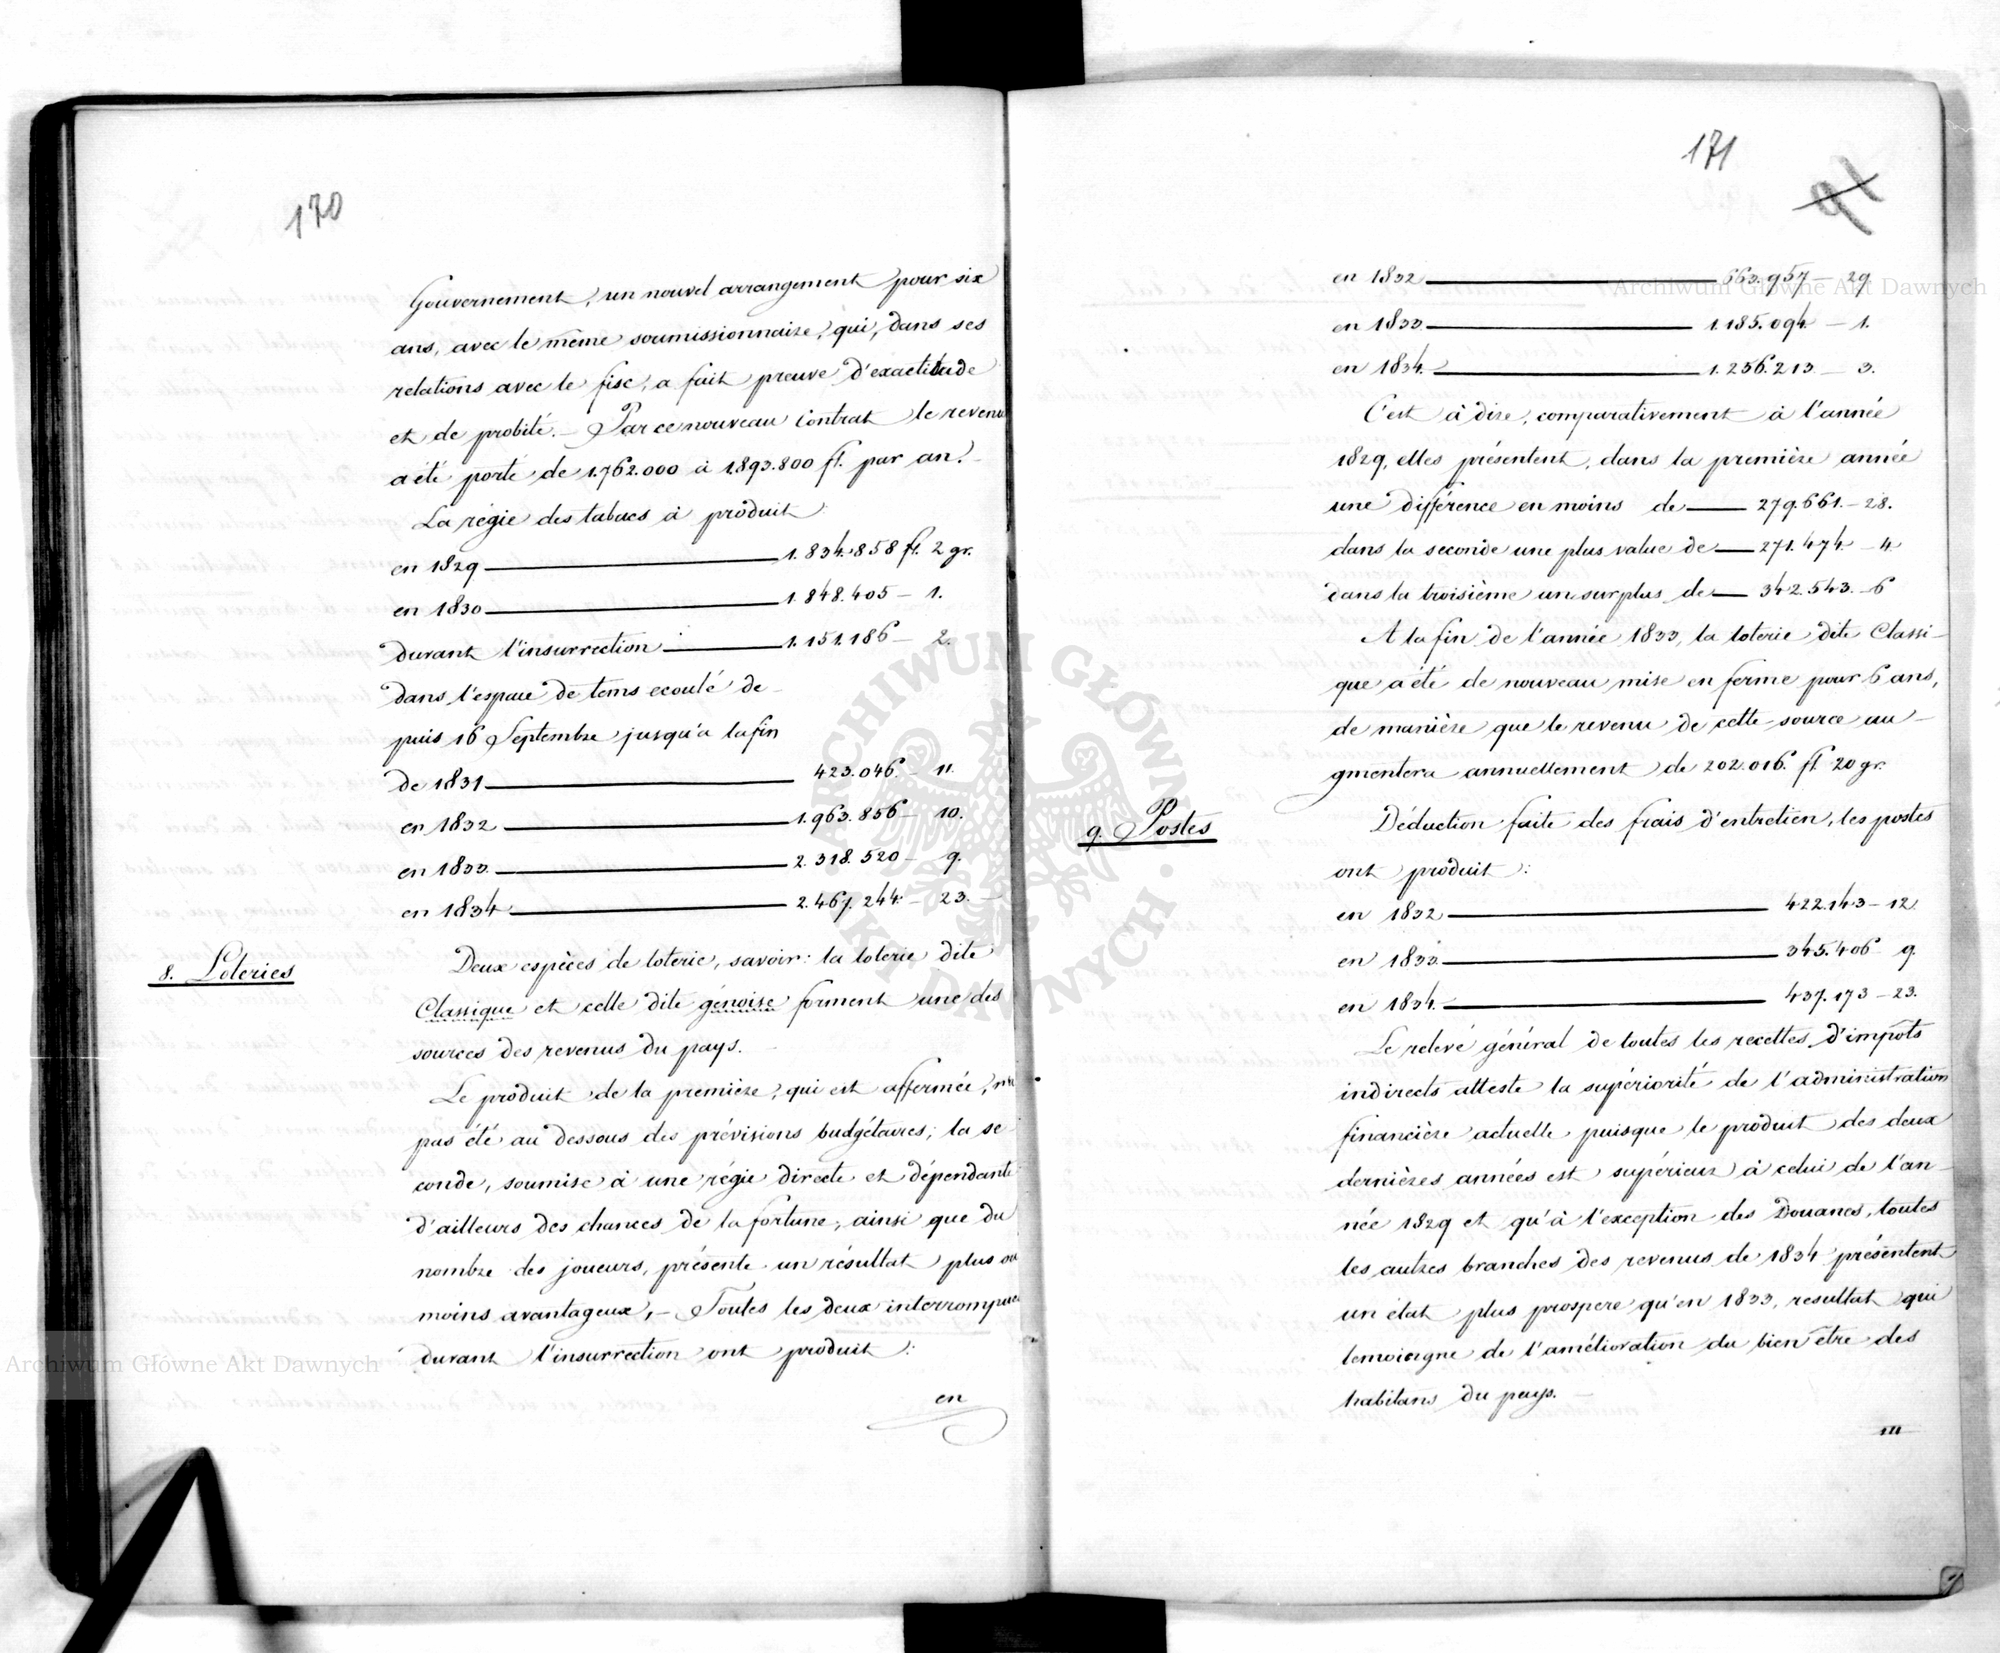 170
Gouvernement, un nouvel arrangement pour six
ans, avec le même soumissionnaire, qui, dans ses
relations avec le fisc, a fait preuve d'exactitude
et de probité. – Par ce nouveau Contrat le revenu
a été porté de 1.762.000 à 1.893.800 fl. par an. –
La régie des tabacs à produit
en 1829 — 1.834.858 fl. 2 gr.
en 1830 — 1.848.405 – 1.
durant l'insurrection — 1.151.186 – 2.
dans l'espace de tems ecoulé de-
puis 16 Septembre jusqu'a la fin
de 1831 — 423.046. – 11.
en 1832 — 1.963.856 – 10.
en 1833 — 2.318.520 – 9.
en 1834 — 2.467.244 – 23. –
8. Loteries
Deux espèces de loterie, savoir: la loterie dite
Classique et celle dite génoise forment une des
sources des revenus du pays. –
Le produit de la première, qui est affermée,
pas été au dessous des prévisions budgétaires; la se
conde, soumise à une régie directe et dépendante
d'ailleurs des chances de la fortune, ainsi que du
nombre des joueurs, présente un résultat plus ou
moins avantageux, – Toutes les deux interrompues
durant l'insurrection ont produit :
en
171
en 1832 — 663.957 – 29
en 1833 — 1.185.094. – 1.
en 1834. — 1.256.213 – 3.
C'est à dire, comparativement à l'année
1829, elles présentent, dans la première année
une différence en moins de — 279.661. – 28.
dans la seconde une plus value de — 271.474. – 4
dans la troisième un surplus de — 342.543. – 6
A la fin de l'année 1833, la loterie dite Classi-
que a été de nouveau mise en ferme pour 6 ans,
de manière que le revenu de cette source au-
gmentera annuellement de 202.016. fl. 20 gr.
9. Postes
Déduction faite des frais d'entretien, les postes
ont produit :
en 1832 — 422.143 – 12.
en 1833 — 345.406 9.
en 1834. — 437.173 – 23.
Le relevé général de toutes les recettes d'impôts
indirects atteste la supériorité de l'administration
financière actuelle puisque le produit des deux
dernières années est supérieur à celui de l'an-
née 1829 et qu'à l'exception des Douanes, toutes
les autres branches des revenus de 1834 présentent
un état plus prospere qu'en 1833, resultat qui
temoigne de l'amélioration du bien être des
habitans du pays. –
III
Archiwum Główne Akt Dawnych
Archiwum Główne Akt Dawnych
ARCHIWUM GŁÓWNE AKT DAWNYCH